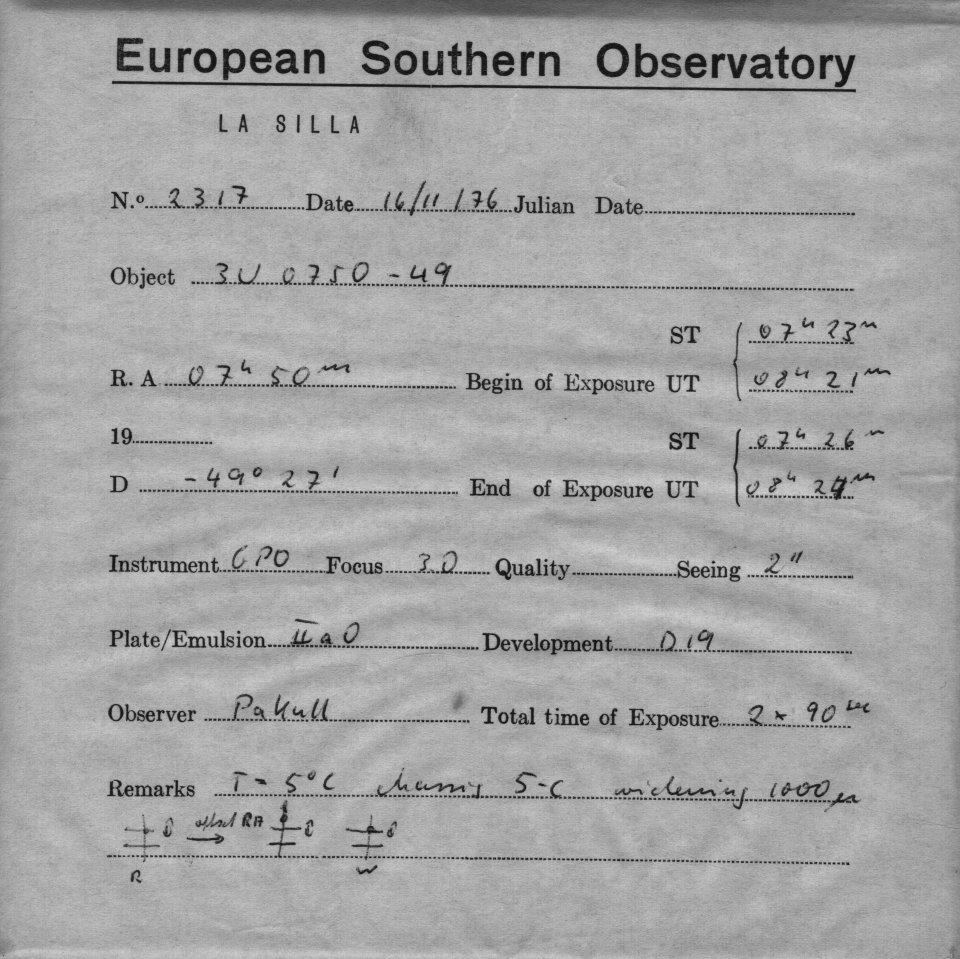 European Southern Observatory
LA SILLA
N.º 2317 Date 16/11/76 Julian Date
Object 3U 0750-49
ST 07h 23m
R. A 07h 50m Begin of Exposure UT 08h 21m
19 ST 07h 26m
D -49° 27' End of Exposure UT 08h 24m
Instrument GPO Focus 30 Quality Seeing 2"
Plate/Emulsion IIaO Development D19
Observer Pakull Total time of Exposure 2 x 90 sec
Remarks T = 5°C chassis 5-C widening 1000
offset RA
R W